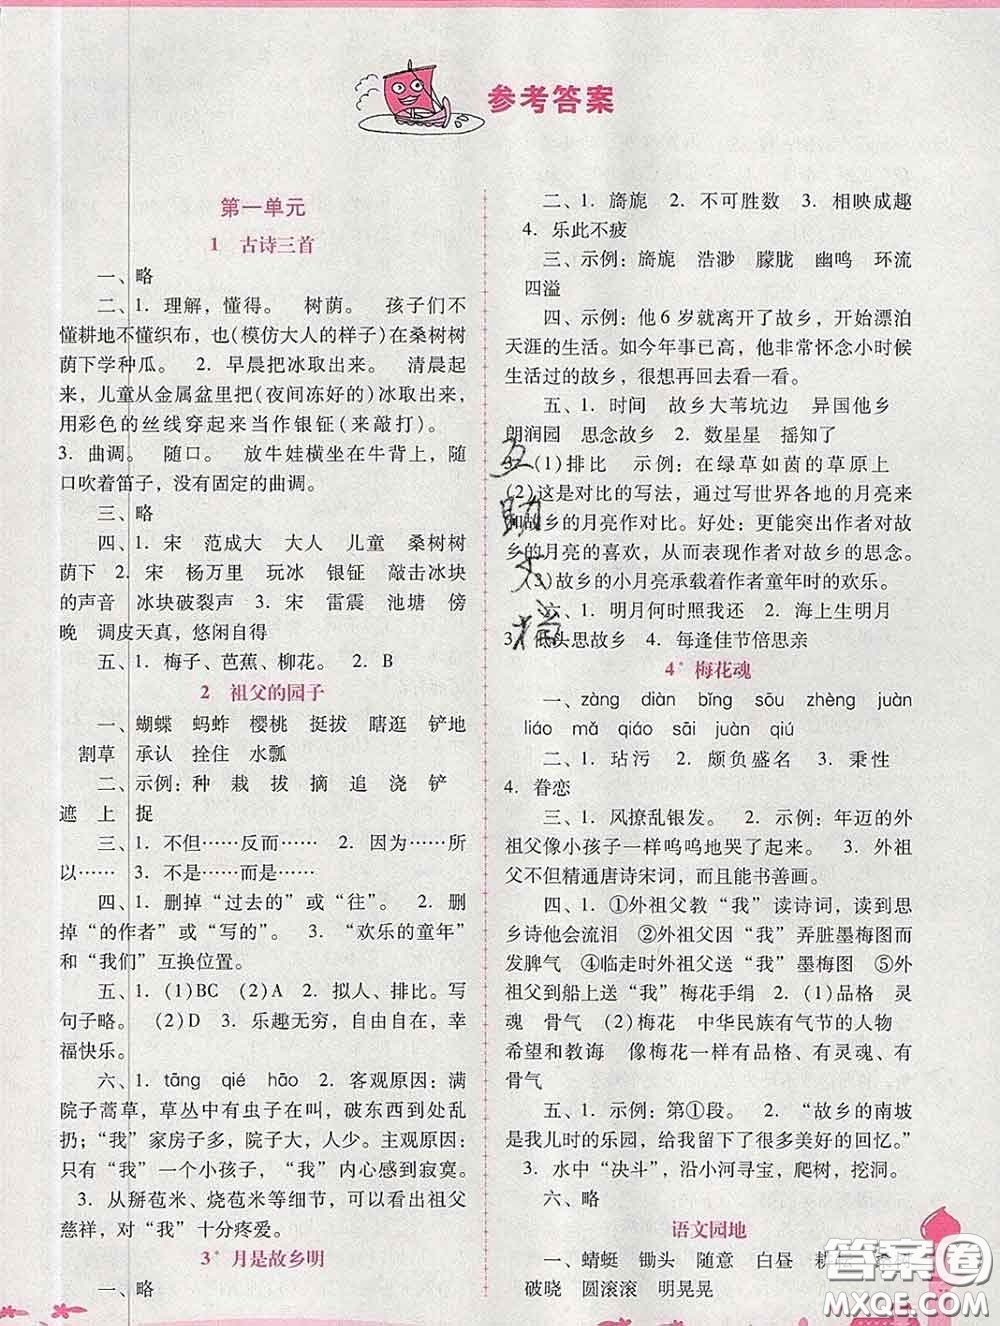 参考答案
第一单元
1 古诗三首
一、略
二、1. 理解，懂得。 树荫。 孩子们不
懂耕地不懂织布，也(模仿大人的样子)在桑树树
荫下学种瓜。 2. 早晨把冰取出来。 清晨起
来，儿童从金属盆里把(夜间冻好的)冰取出来，
用彩色的丝线穿起来当作银钲(来敲打)。
3. 曲调。 随口。 放牛娃横坐在牛背上，随
口吹着笛子，没有固定的曲调。
三、略
四、1. 宋 范成大 大人 儿童 桑树树
荫下 2. 宋 杨万里 玩冰 银钲 敲击冰块
的声音 冰块破裂声 3. 宋 雷震 池塘 傍
晚 调皮天真，悠闲自得
五、1. 梅子、芭蕉、柳花。 2. B
2 祖父的园子
一、蝴蝶 蚂蚱 樱桃 挺拔 瞎逛 铲地
割草 承认 拴住 水瓢
二、示例：种 栽 拔 摘 追 浇 铲
遮 上 捉
三、1. 不但……反而…… 2. 因为……所
以…… 3. 不是……而是……
四、1. 删掉“过去的”或“往”。 2. 删
掉“的作者”或“写的”。 3. “欢乐的童年”
和“我们”互换位置。
五、1. (1)BC (2)A 2. 拟人、排比。写
句子略。 (2)D 3. 乐趣无穷，自由自在，幸
福快乐。
六、1. tāng qié hāo 2. 客观原因：满
院子蒿草，草丛中有虫子在叫，破东西到处乱
扔；“我”家房子多，院子大，人少。主观原因：
只有“我”一个小孩子，“我”内心感到寂寞。
3. 从掰苞米、烧苞米等细节，可以看出祖父
慈祥，对“我”十分疼爱。
3* 月是故乡明
一、略
二、1. 旖旎 2. 不可胜数 3. 相映成趣
4. 乐此不疲
三、示例：旖旎 浩渺 朦胧 幽鸣 环流
四溢
四、示例：他6岁就离开了故乡，开始漂泊
天涯的生活。如今年事已高，他非常怀念小时候
生活过的故乡，很想再回去看一看。
五、1. 时间 故乡大苇坑边 异国他乡
朗润园 思念故乡 2. 数星星 摇知了
(1)排比 示例：在绿草如茵的草原上
(2)这是对比的写法，通过写世界各地的月亮来
和故乡的月亮作对比。好处：更能突出作者对故
乡的月亮的喜欢，从而表现作者对故乡的思念。
(3)故乡的小月亮承载着作者童年时的欢乐。
六、1. 明月何时照我还 2. 海上生明月
3. 低头思故乡 4. 每逢佳节倍思亲
互助文摘
4* 梅花魂
一、zàng diàn bīng sōu zhèng juàn
liáo mǎ qiáo sāi juàn qiú
二、1. 玷污 2. 颇负盛名 3. 秉性
4. 眷恋
三、1. 风撩乱银发。 2. 示例：年迈的外
祖父像小孩子一样呜呜地哭了起来。 3. 外祖
父不但精通唐诗宋词，而且能书善画。
四、1. ①外祖父教“我”读诗词，读到思
乡诗他会流泪 ②外祖父因“我”弄脏墨梅图而
发脾气 ④临走时外祖父送“我”墨梅图 ⑤外
祖父到船上送“我”梅花手绢 2. (1)品格 灵
魂 骨气 (2)梅花 中华民族有气节的人物
希望和教诲 像梅花一样有品格、有灵魂、有
骨气
五、1. 示例：第①段。 2. “故乡的南坡
是我儿时的乐园，给我留下了很多美好的回忆。”
3. 水中“决斗”，沿小河寻宝，爬树，挖洞。
六、略
语文园地
一、蜻蜓 锄头 随意 白昼
破晓 圆滚滚 明晃晃
答案圈
MXQE.COM